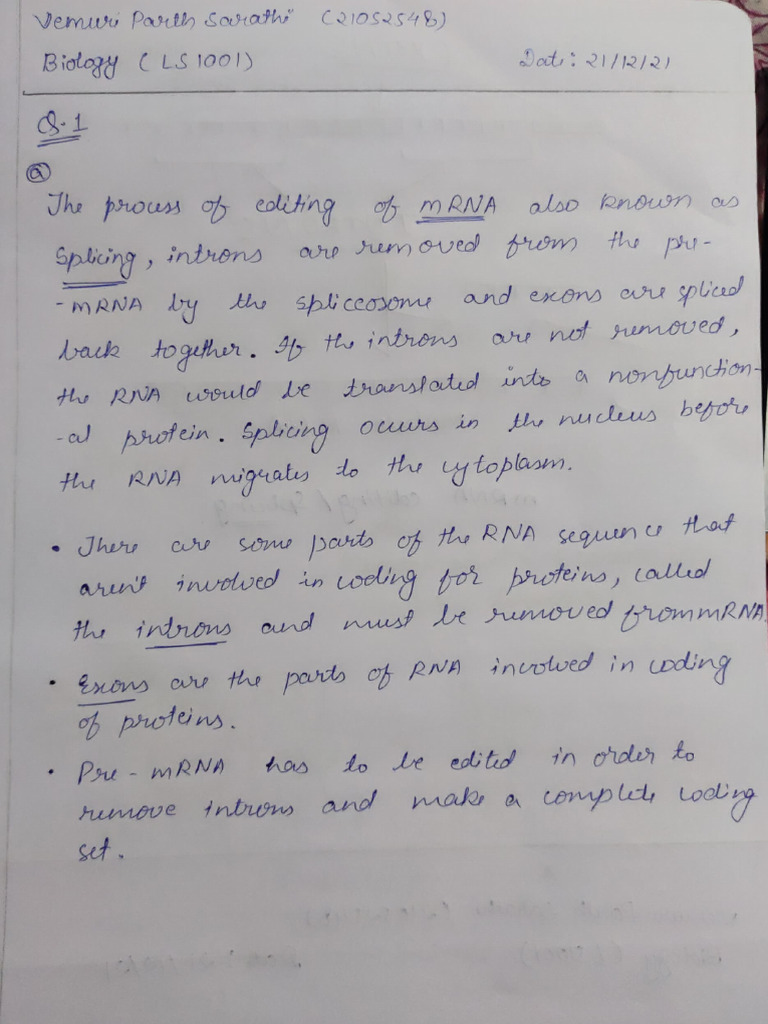 Vemuri Parth Sarathi (21052548)
Biology (LS1001) Date: 21/12/21
Q.1
a
The process of editing of mRNA also known as
splicing, introns are removed from the pre-
-mRNA by the spliceosome and exons are spliced
back together. If the introns are not removed,
the RNA would be translated into a nonfunction-
-al protein. Splicing occurs in the nucleus before
the RNA migrates to the cytoplasm.
• There are some parts of the RNA sequence that
aren't involved in coding for proteins, called
the introns and must be removed from mRNA.
• Exons are the parts of RNA involved in coding
of proteins.
• Pre-mRNA has to be edited in order to
remove introns and make a complete coding
set.